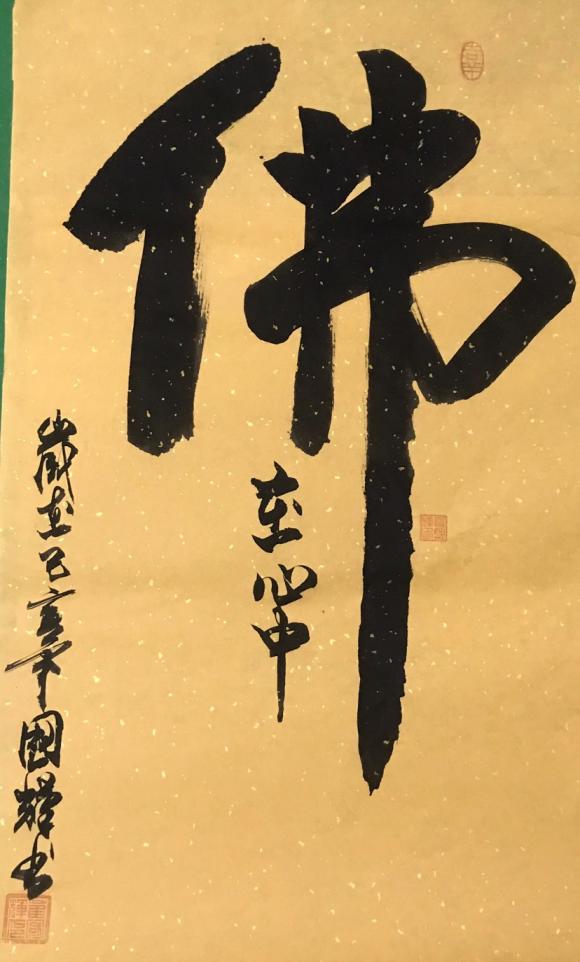 佛
在心中
歲在己亥年國輝書